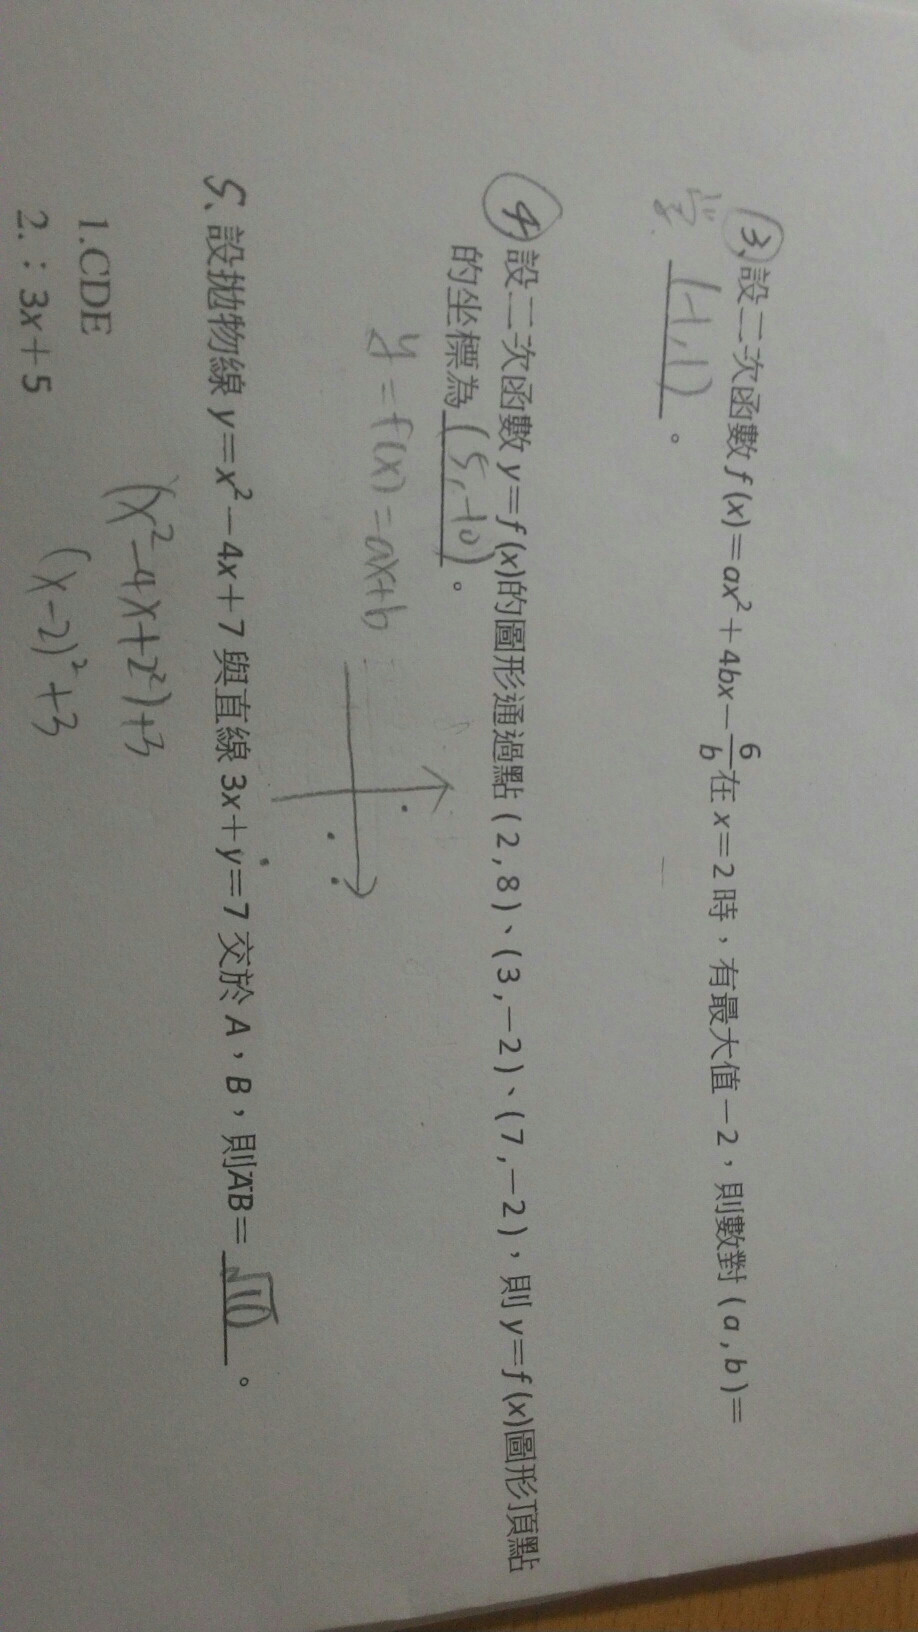 3. 設二次函數 f(x)=ax²+4bx−6/b 在 x=2 時，有最大值−2，則數對(a,b)=
(-1,1)。
4. 設二次函數 y=f(x)的圖形通過點(2,8)、(3,−2)、(7,−2)，則 y=f(x)圖形頂點
的坐標為 (5,-10)。
y=f(x)=ax+b
5、設拋物線 y=x²−4x+7 與直線 3x+y=7 交於 A，B，則AB= √10 。
(x²-4x+2²)+3
(x-2)²+3
1.CDE
2.：3x+5